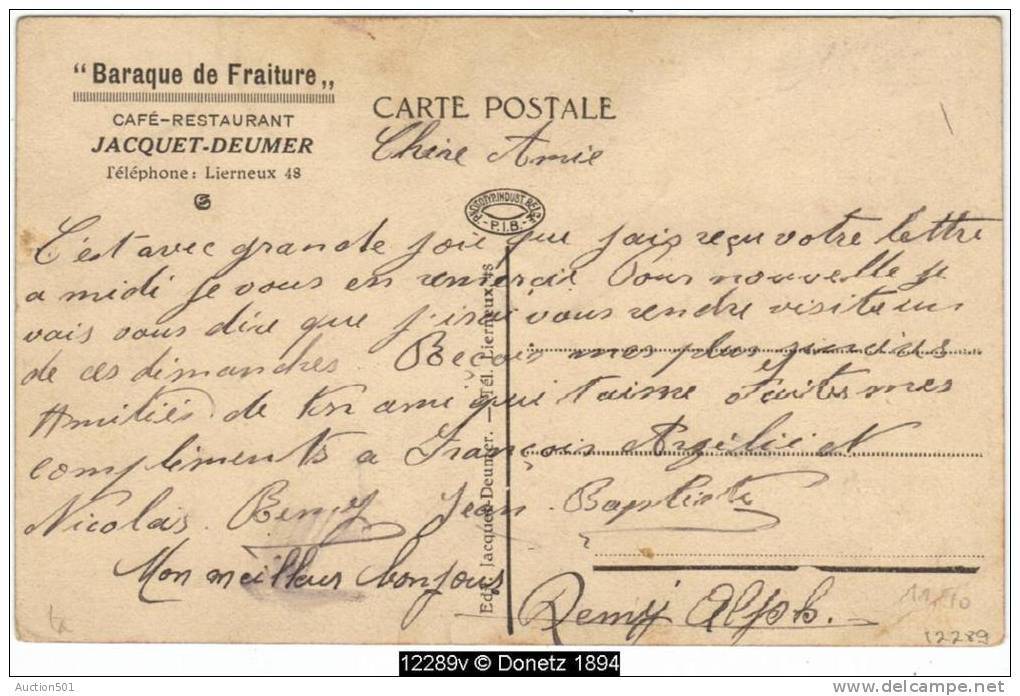 “Baraque de Fraiture„
CAFÉ-RESTAURANT
JACQUET-DEUMER
Téléphone: Lierneux 48
CARTE POSTALE
PHOTOTYP. INDUST. BELGE
-P.I.B.-
Chère Amie
C'est avec grande joie que jais reçu votre lettre
a midi je vous en remercie Pour nouvelle je
vais vous dire que j'irai vous rendre visite un
de ces dimanches Reçois mes plus
Amitiés de ton ami qui t'aime Faites mes
compliments a François Argélie N
Nicolas. Remy Jean. Baptiste
Mon meilleur bonjour
Remy Alph.
Edit. Jacquet-Deumer. — Tél. Lierneux 48
12289
12289v © Donetz 1894
Auction501
www.delcampe.net